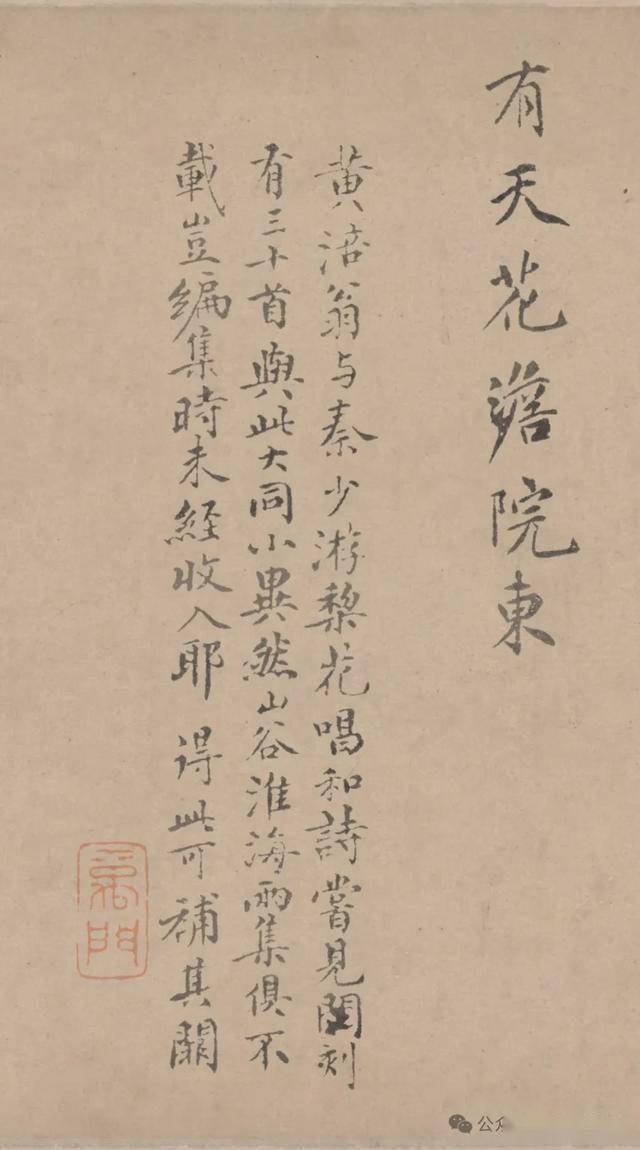 有天花澹院東
黄涪翁与秦少游梨花唱和詩嘗見閣刻
有三十首與此大同小異然山谷淮海兩集俱不
載豈編集時未經收入耶 得此可補其闕
公众